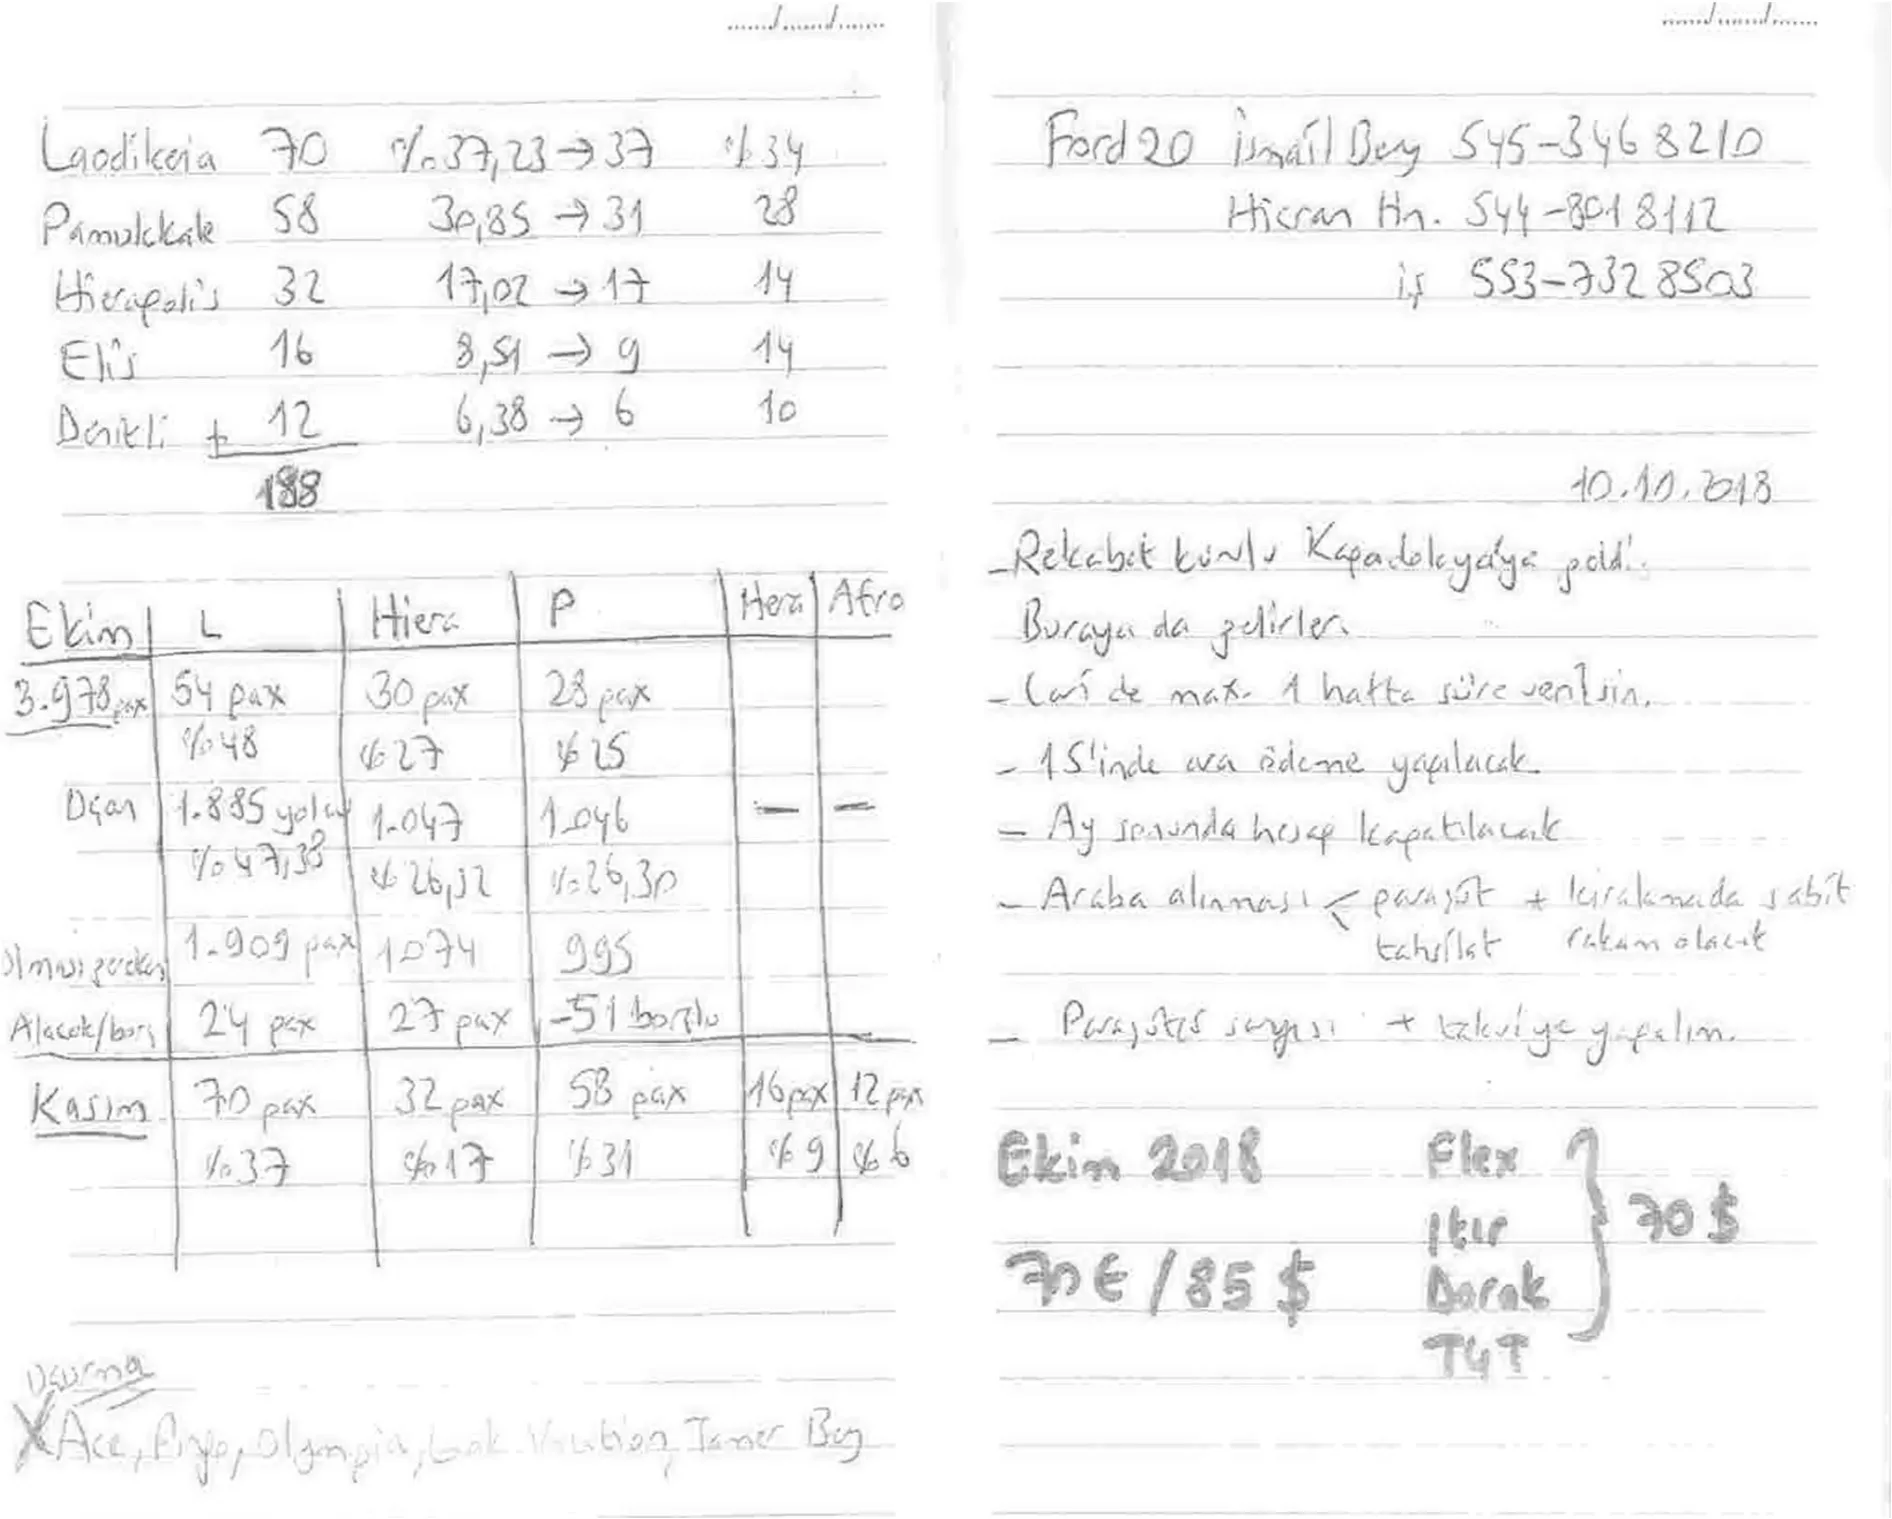 Laodikeia 70 %37,23 → 37 %34
Pamukkale 58 30,85 → 31 28
Hierapolis 32 17,02 → 17 14
Elis 16 8,51 → 9 14
Denizli + 12 6,38 → 6 10
188
Ekim L Hiera P Hera Afro
3.978 pax 54 pax 30 pax 28 pax
%48 %27 %25
Uçan 1.885 yolcu 1.047 1.046 — —
%47,38 %26,32 %26,30
Olması gereken 1.909 pax 1074 995
Alacak/borç 24 pax 27 pax -51 borçlu
Kasım 70 pax 32 pax 58 pax 16 pax 12 pax
%37 %17 %31 %9 %6
Uçurma
X Ace, Olympia, Vacation, Tamer Bey
Ford 20 İsmail Bey 545-346 8210
Hicran Hn. 544-801 8112
iş 553-732 8503
10.10.2018
- Rekabet kurulu Kapadokya'ya geldi.
Buraya da gelirler.
- Cari de max. 1 hafta süre verilsin.
- 15'inde ara ödeme yapılacak.
- Ay sonunda hesap kapatılacak
- Araba alınması < paraşüt + kiralamada sabit
tahsilat rakam olacak
- Paraşütçü sayısı + takviye yapalım.
Ekim 2018 Flex
Itır } 70 $
70 € / 85 $ Dorak
T4T